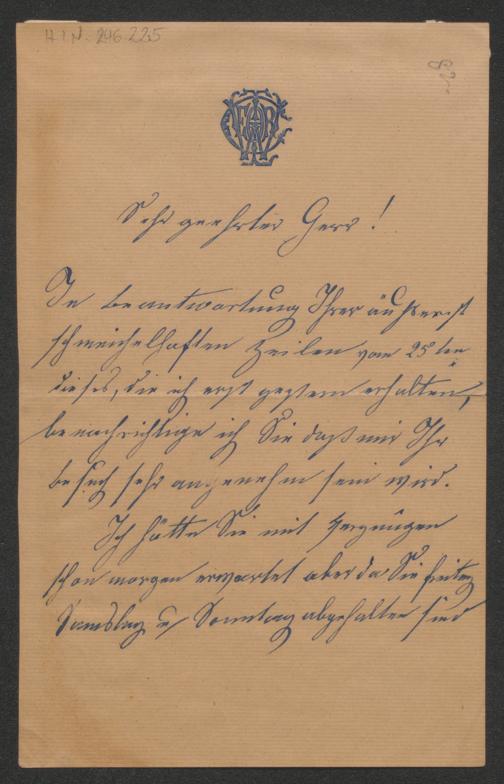 H.I.N. 246.225
Sehr geehrter Herr!
In beantwortung Ihrer äußerst
schmeichelhaften Zeilen vom 25ten
dieses, die ich erst gestern erhalten,
benachrichtige ich Sie daß mir Ihr
besuch sehr angenehm sein wird.
Ich hätte Sie mit Vergnügen
schon morgen erwartet aber da Sie freitag
Samstag u Sonntag abgehalten sind